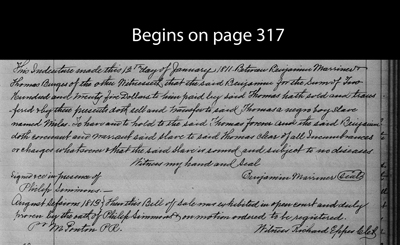 Begins on page 317
This Indenture made this 12th day of January 1811 Between Benjamin Marriner &
Thomas Burges of the other Witnesseth that the said Benjamin for the Sum of Two
Hundred and twenty five Dollars to him paid by said Thomas hath sold and trans
fered & by these presents doth sell and transfer to said Thomas a negro boy slave
named Miles. To have and to hold to the said Thomas forever and the said Benjamin
doth covenant and warrant said slave to said Thomas clear of all Incumbrances
or charges whatsoever & that the said slave is sound and subject to no diseases
Witness my hand and Seal
Signed in presence of Benjamin Marriner (Seal)
Philip Simmons.
August Session 1819 Then this Bill of sale was exhibited in open court and duly
proven by the oath of Philip Simmons & on motion ordered to be registered.
M. Ponton P.R. Witness Richard Eppes Clk.